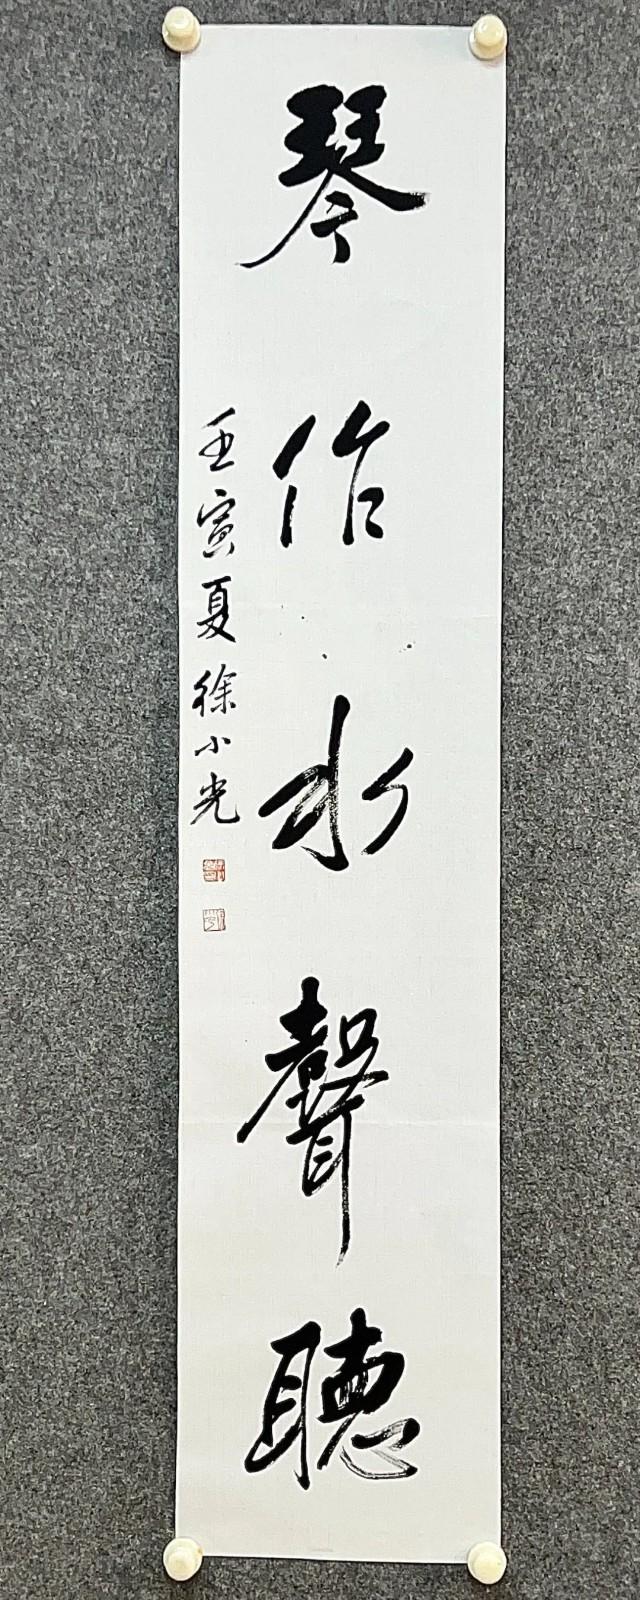 琴作水聲聽
壬寅夏徐小光